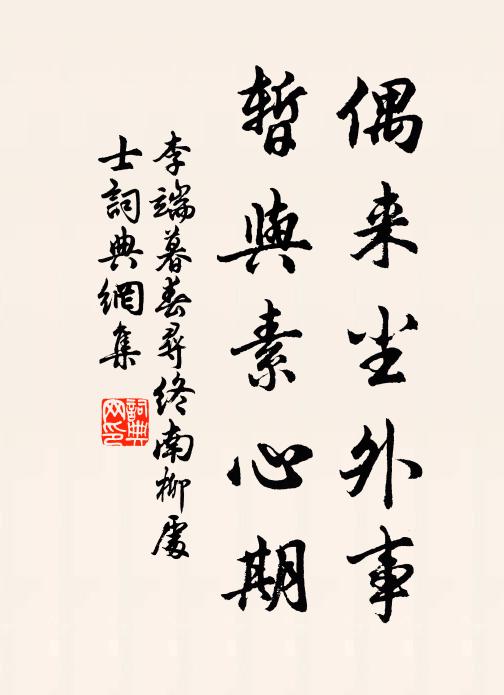 偶来尘外事
暫與素心期
李端暮春尋终南柳處
士詞典網集
詞典
网印